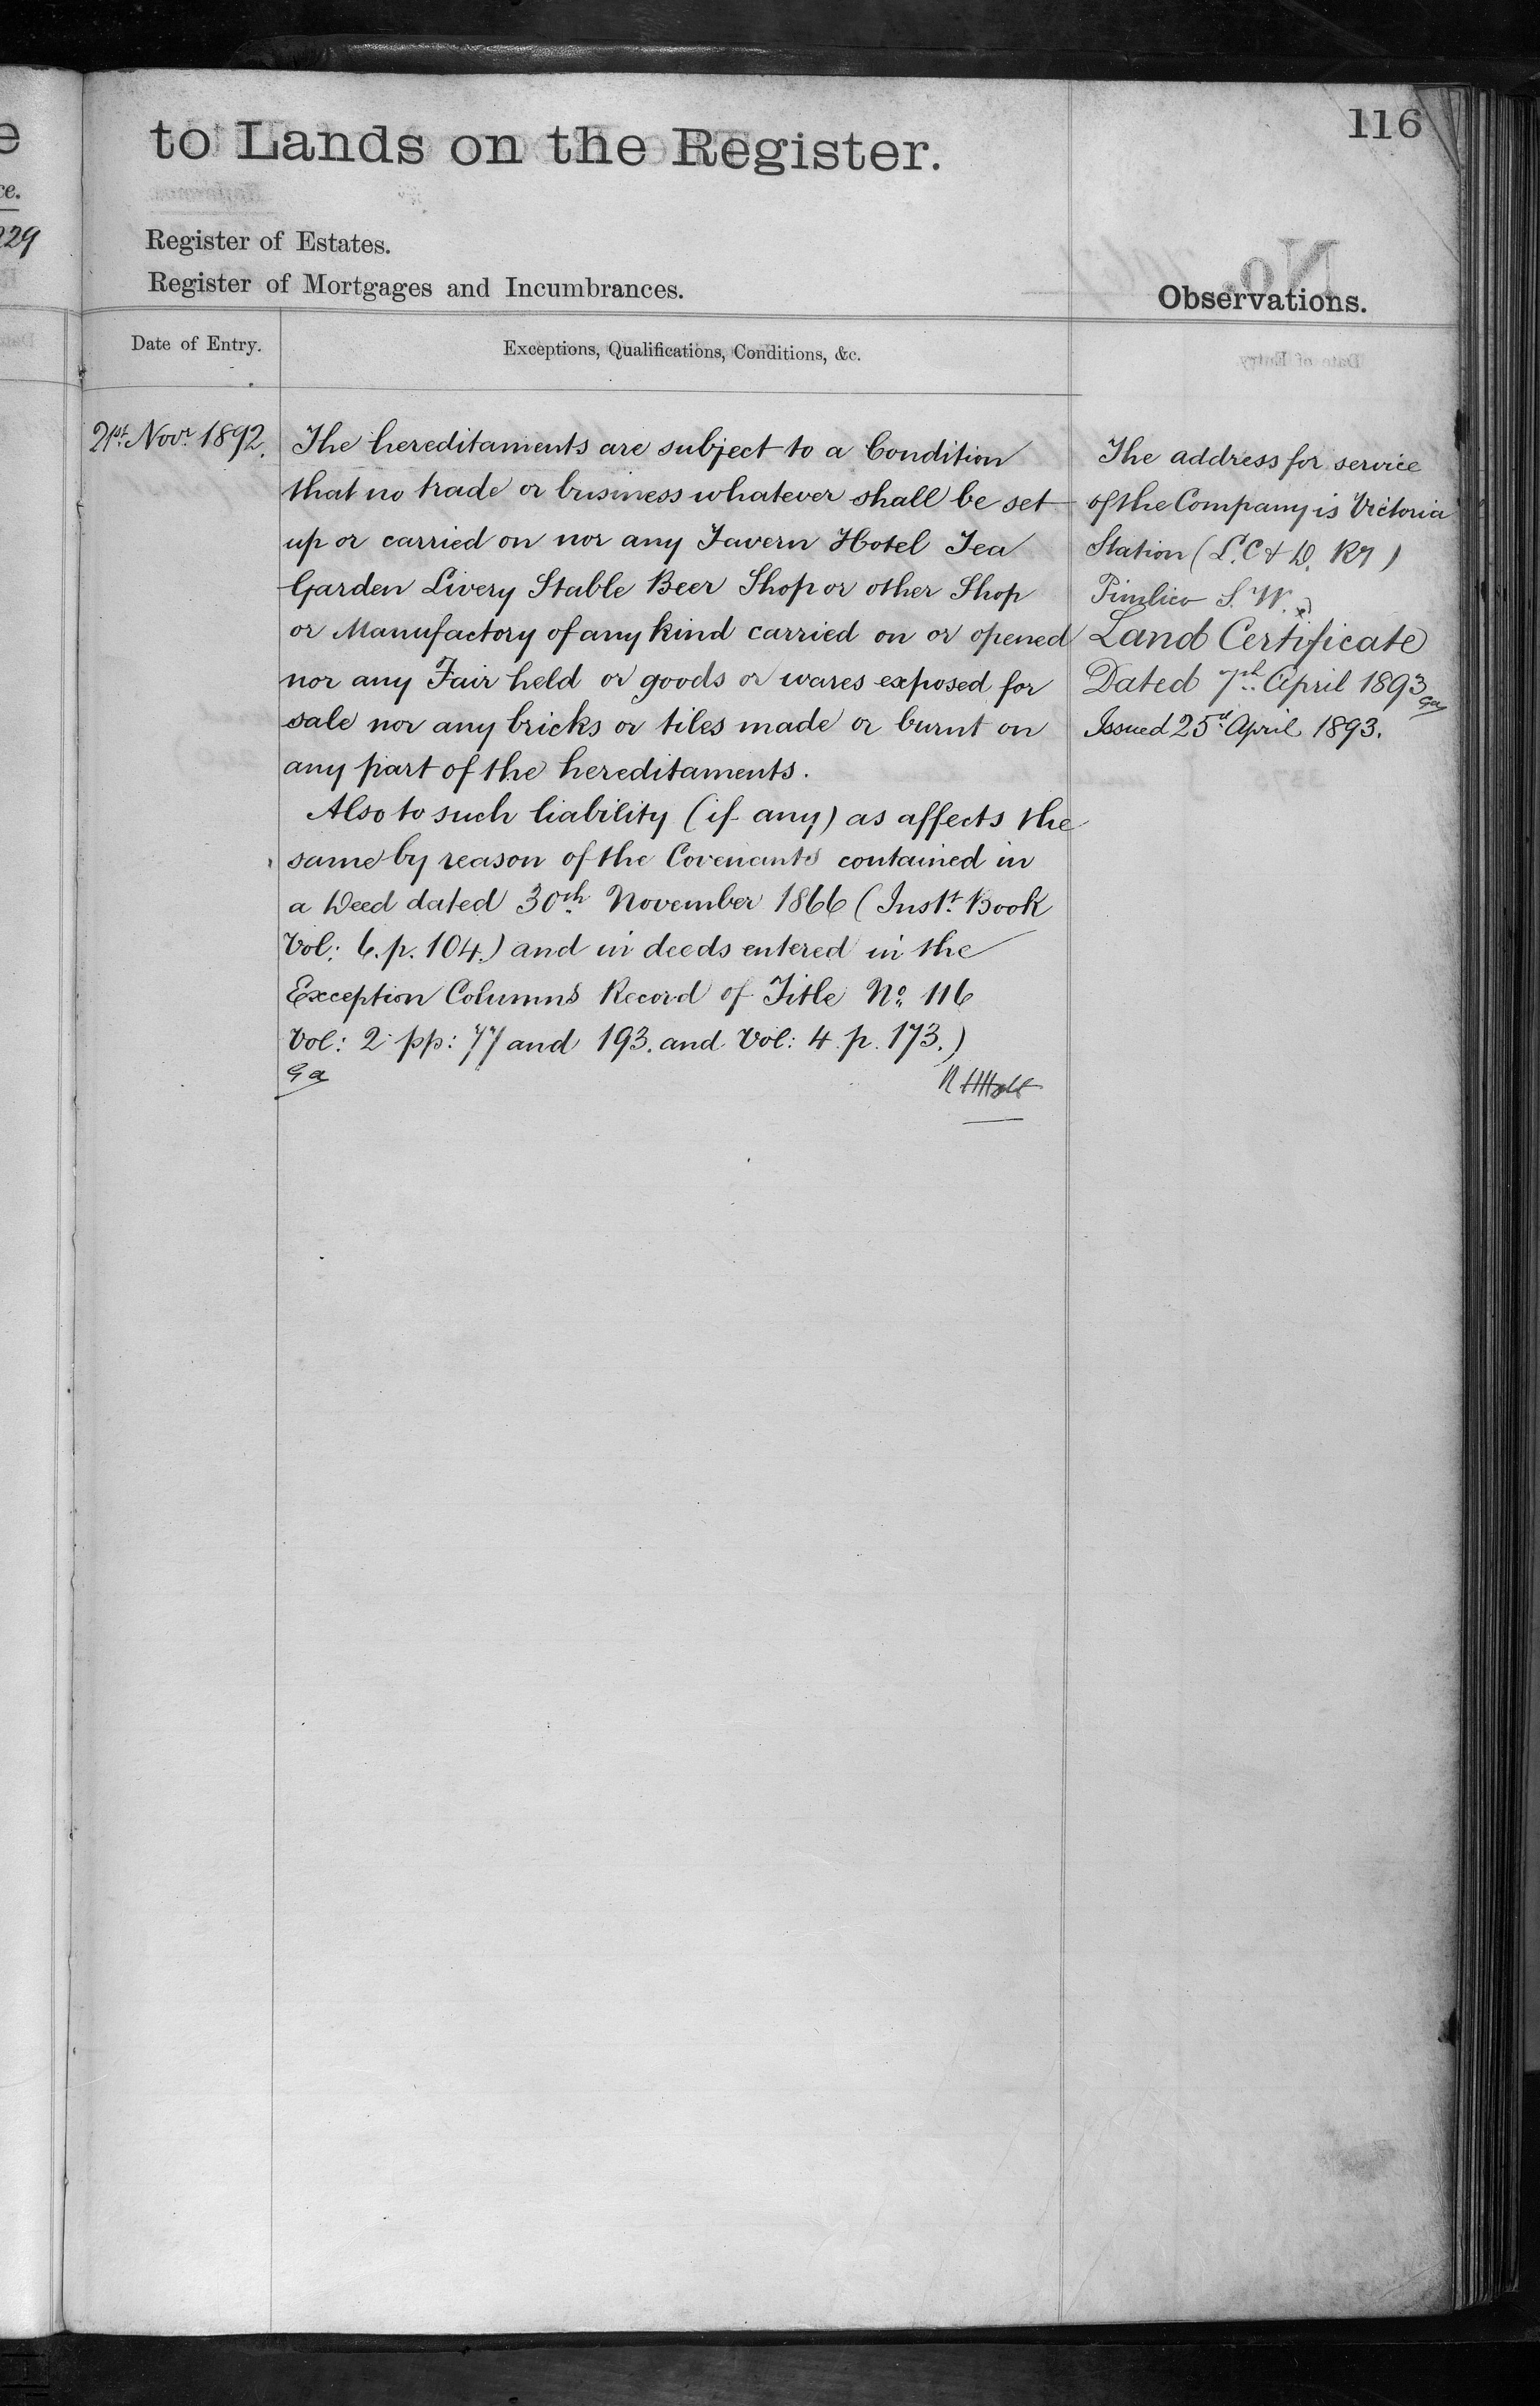 116
to Lands on the Register.
Register of Estates.
Register of Mortgages and Incumbrances.
Observations.
Date of Entry.
Exceptions, Qualifications, Conditions, &c.
21st Novr 1892.
The hereditaments are subject to a Condition
that no trade or business whatever shall be set
up or carried on nor any Tavern Hotel Tea
Garden Livery Stable Beer Shop or other Shop
or Manufactory of any kind carried on or opened
nor any Fair held or goods or wares exposed for
sale nor any bricks or tiles made or burnt on
any part of the hereditaments.
Also to such liability (if any) as affects the
same by reason of the Covenants contained in
a Deed dated 30th November 1866 (Inst. Book
Vol: 6. p. 104.) and in deeds entered in the
Exception Columns Record of Title No. 116
Vol: 2 pp: 77 and 193. and Vol: 4 p. 173.)
Ga
The address for service
of the Company is Victoria
Station (L.C & D. Ry)
Pimlico S.W.
Land Certificate
Dated 7th April 1893
Ga
Issued 25th April 1893.
e
ce.
229